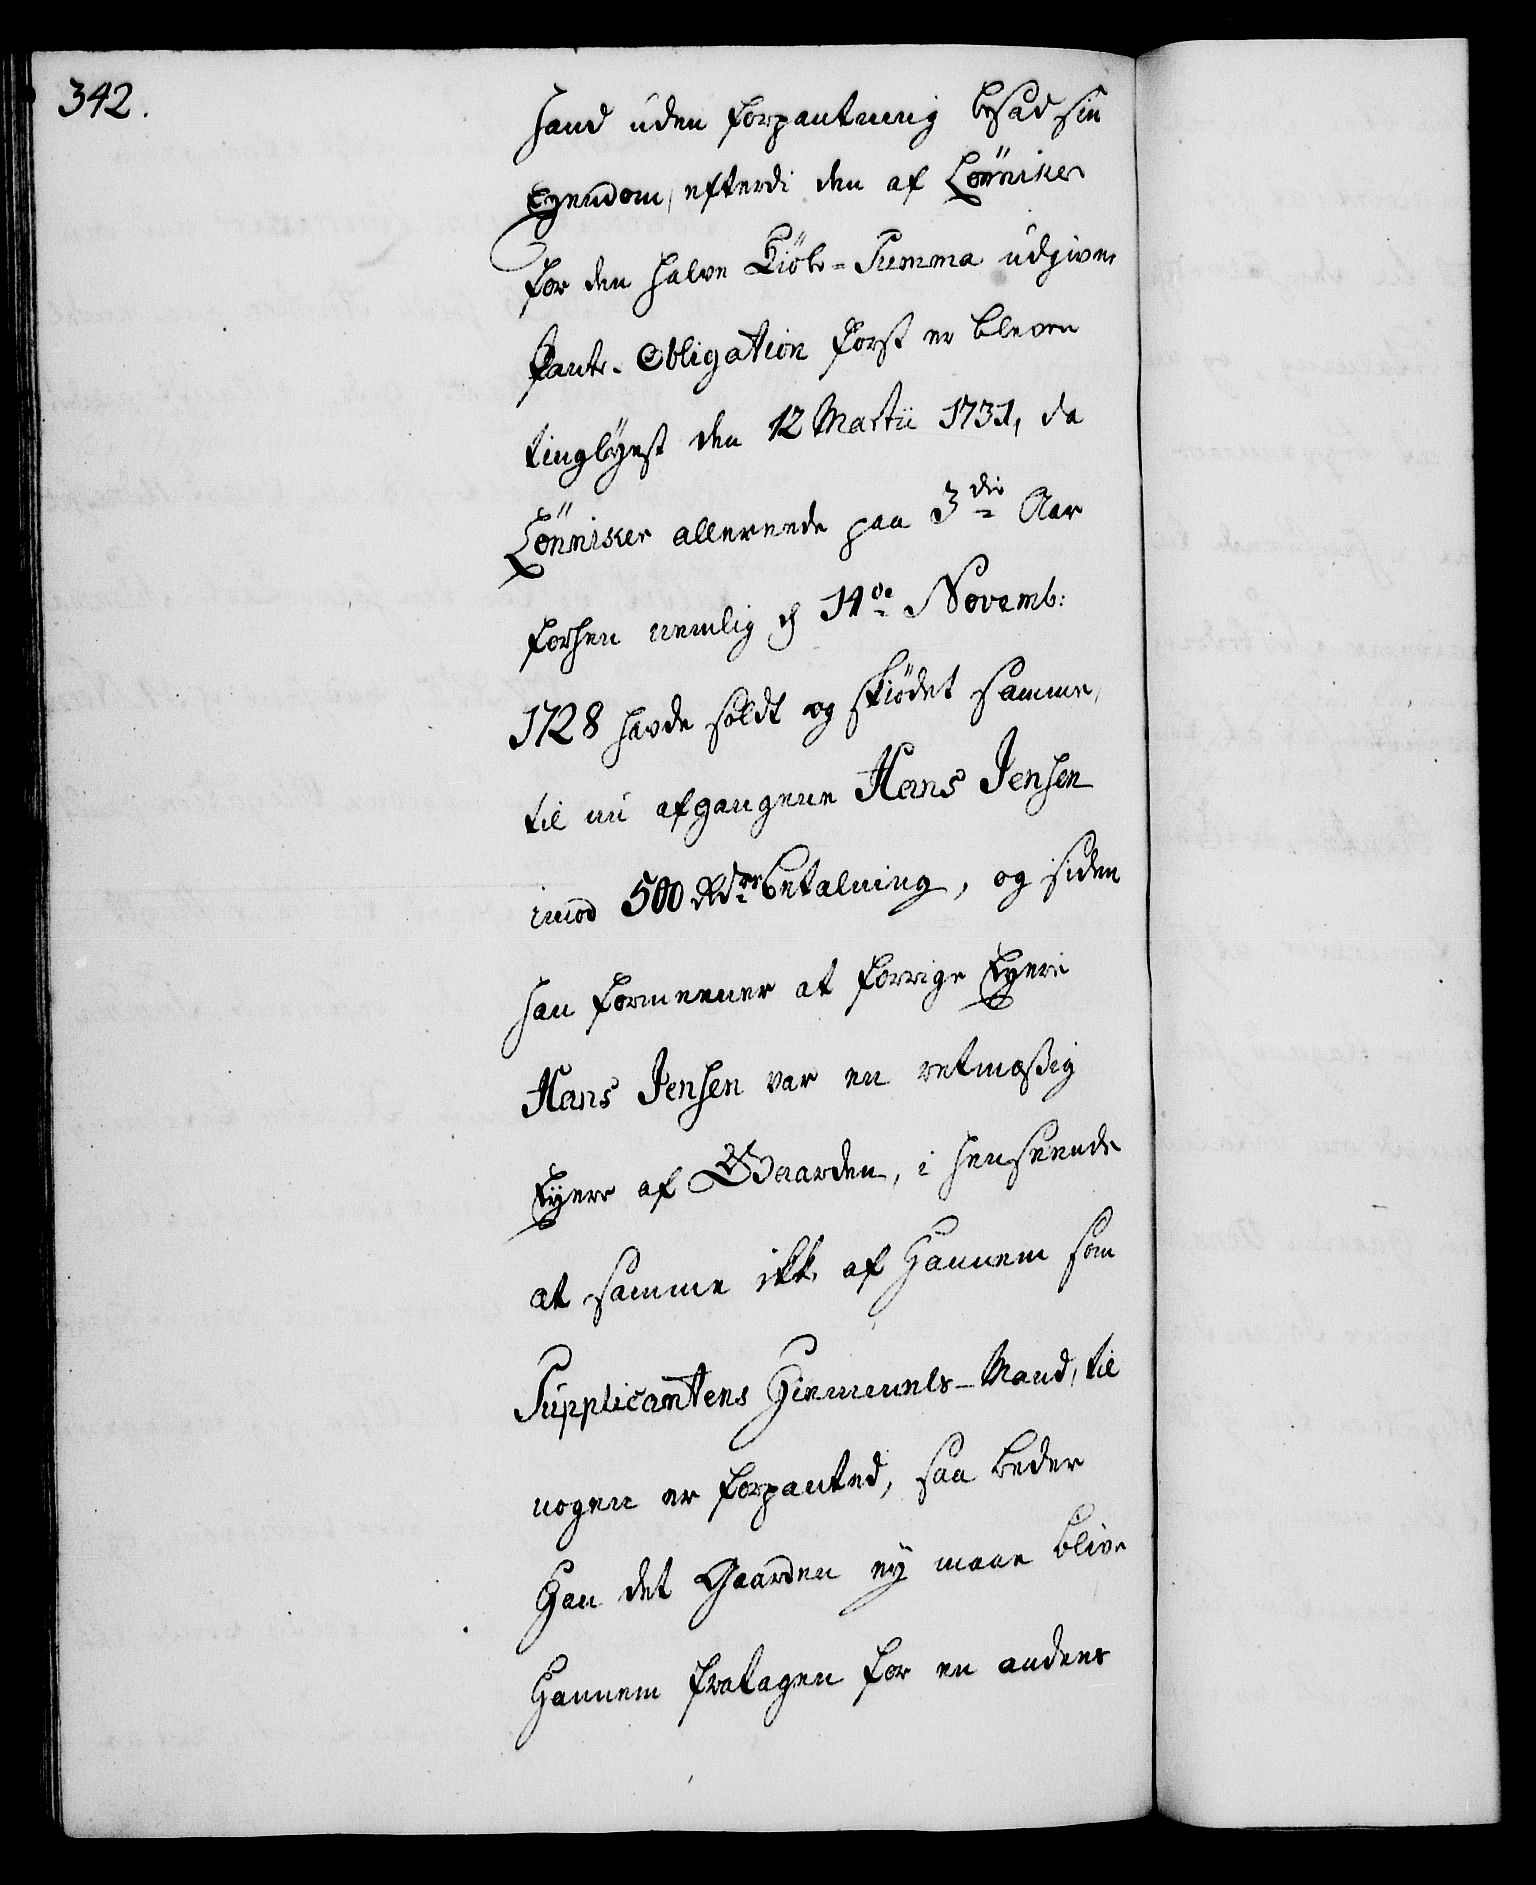 342.
hand uden forpantning besad sin
Eyendom, efterdi den af Lönniker
for den halve Kiöbe-Summa udgivne
Pante-Obligation först er bleven
tinglyst den 12 Martii 1731, da
Lönniker allereede paa 3die Aar
forhen nemlig d 14de Novemb:
1728 havde soldt og skiödet samme,
til nu afgangene Hans Jensen
imod 500 Rdrs betalning, og siden
han formeener at forrige Eyere
Hans Jensen var en retmæssig
Eyere af Gaarden, i henseende
at samme ikke af Hannem som
Supplicantens Hiemmels-Mand, til
nogen er forpanted, saa beder
Han det Gaarden ey maae blive
Hannem fratagen for en andens